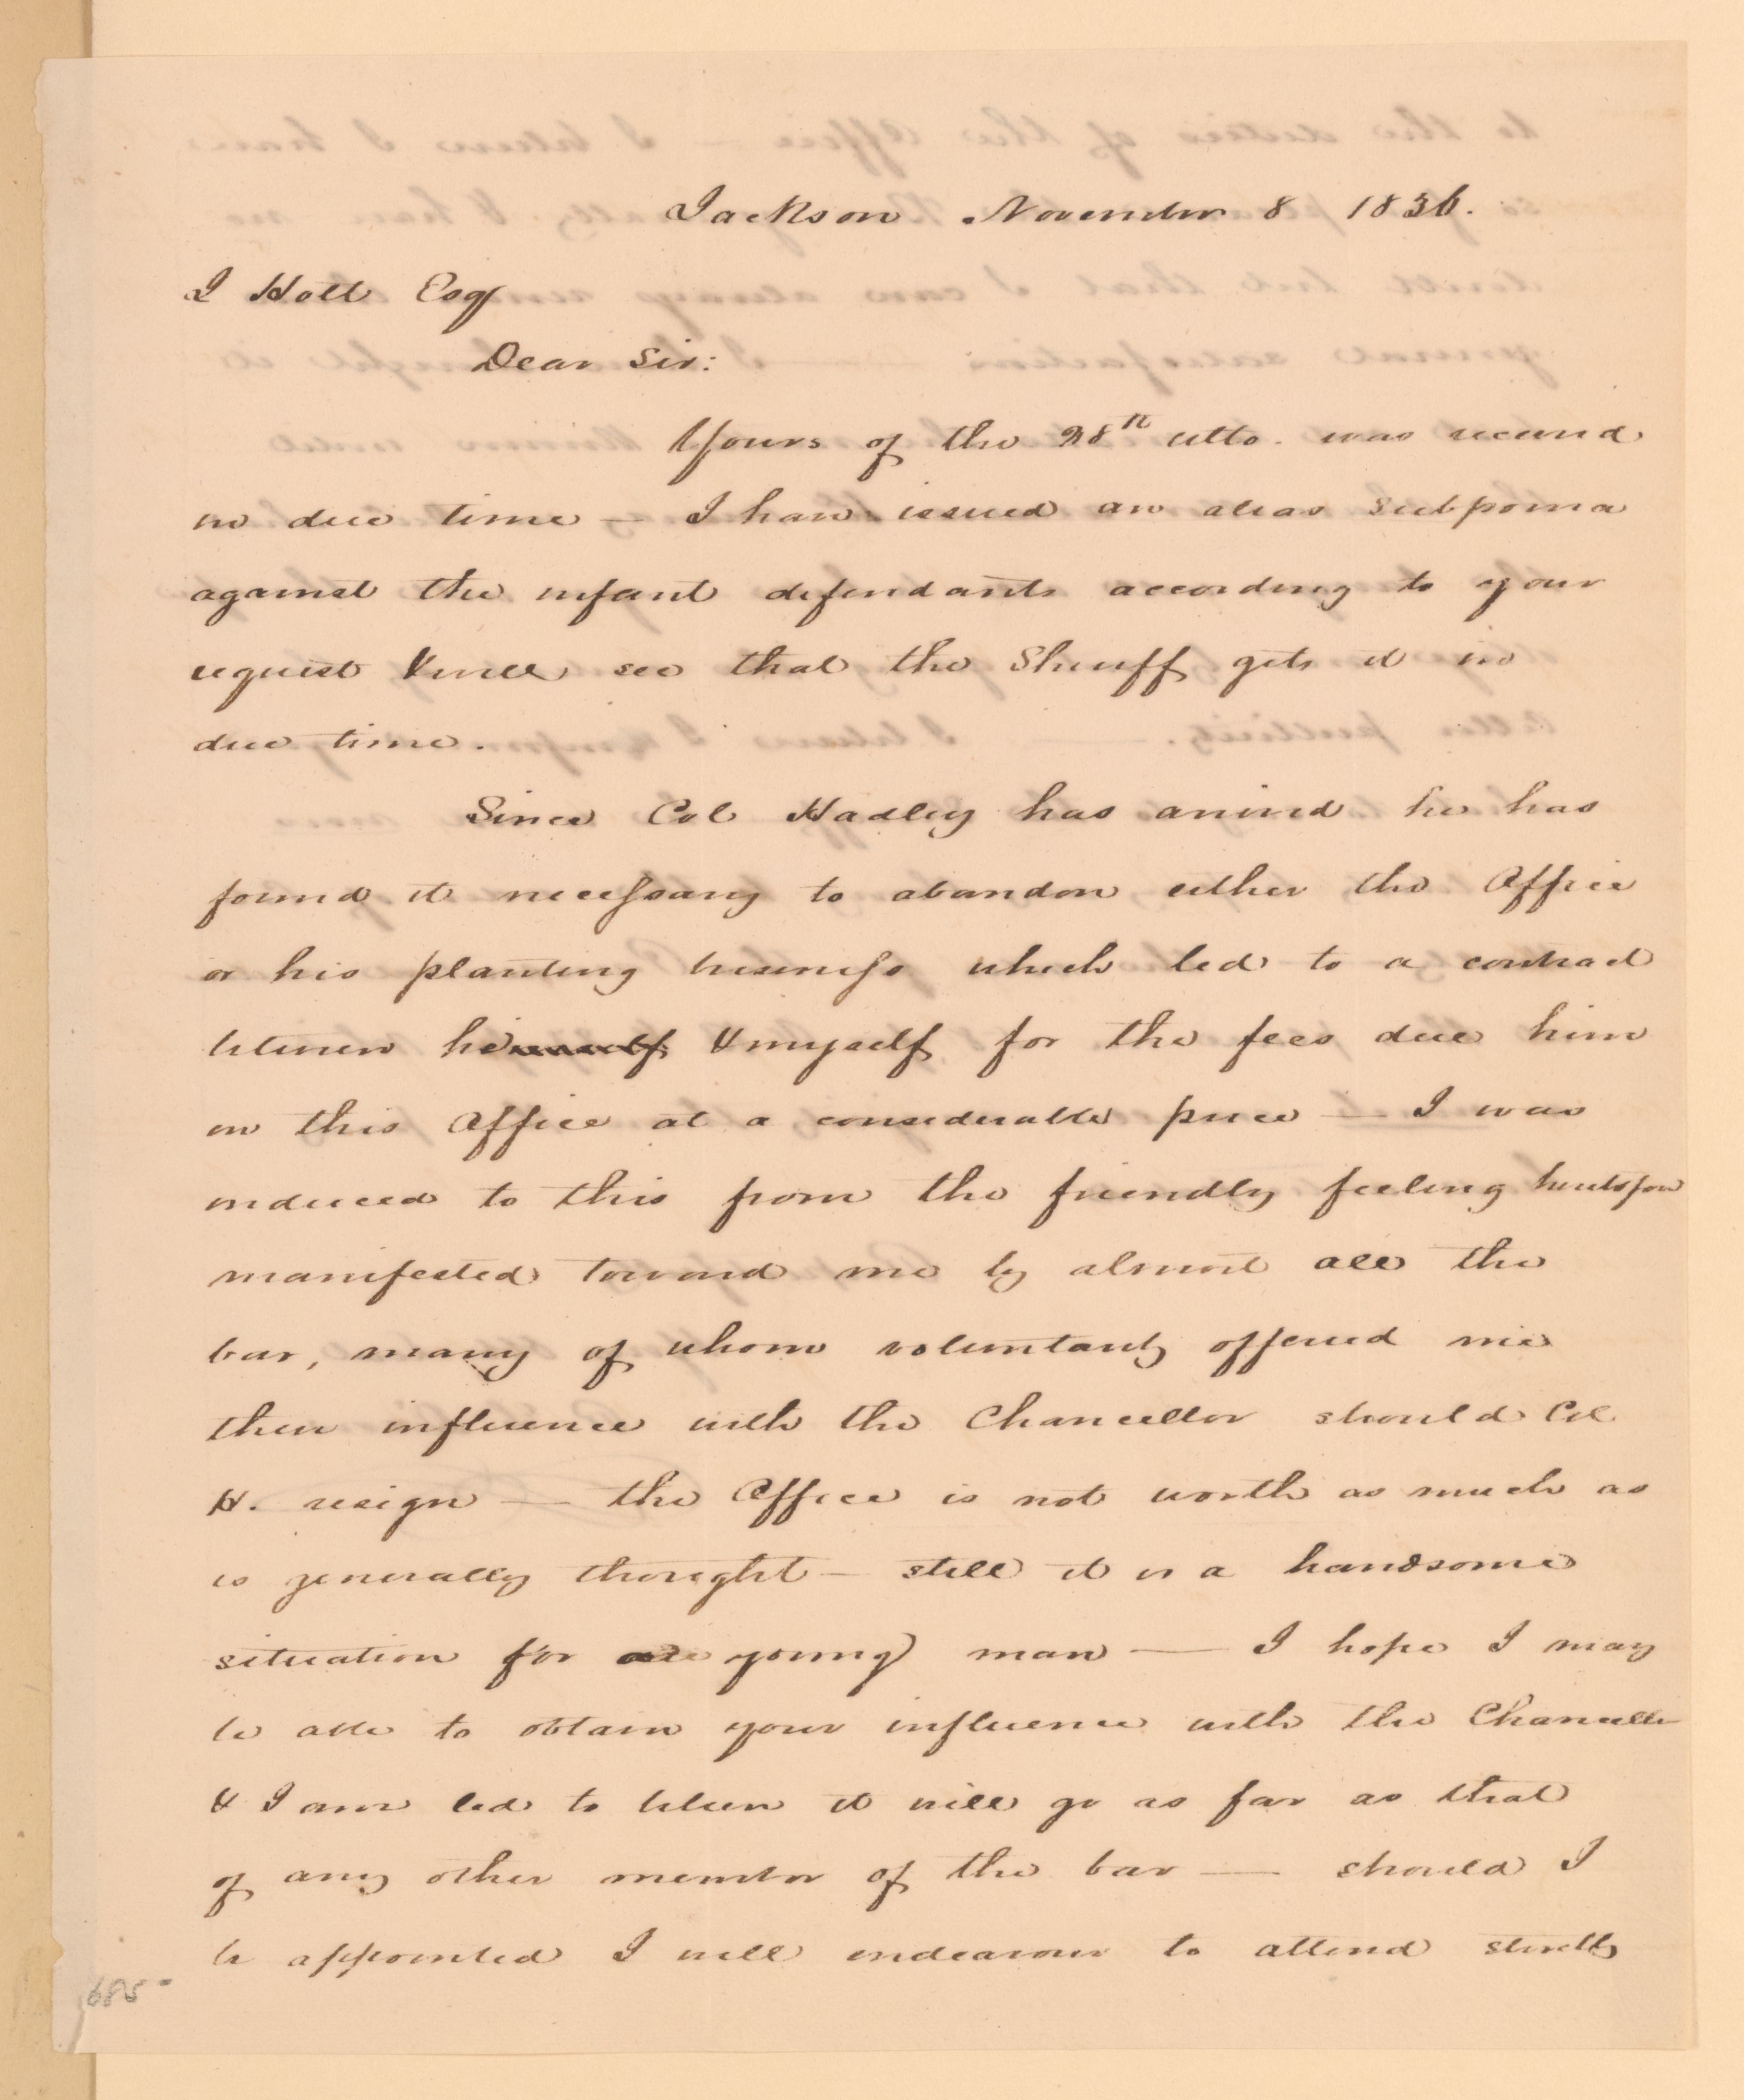 Jackson November 8 1836.
J Holt Esqr
Dear Sir:
Yours of the 28th ulto. was received
in due time — I have issued an alias Subpoena
against the infant defendants according to your
request & will see that the Sheriff gets it in
due time.
Since Col Hadley has arrived he has
found it necessary to abandon either the Office
or his planting business which led to a contract
between him & myself for the fees due him
in this Office at a considerable price — I was
induced to this from the friendly feeling heretofore
manifested toward me by almost all the
bar, many of whom voluntarily offered me
their influence with the Chancellor should Col
H. resign — the Office is not worth as much as
is generally thought — still it is a handsome
situation for a young man — I hope I may
be able to obtain your influence with the Chancellor
& I am led to believe it will go as far as that
of any other member of the bar — should I
be appointed I will endeavour to attend strictly
685